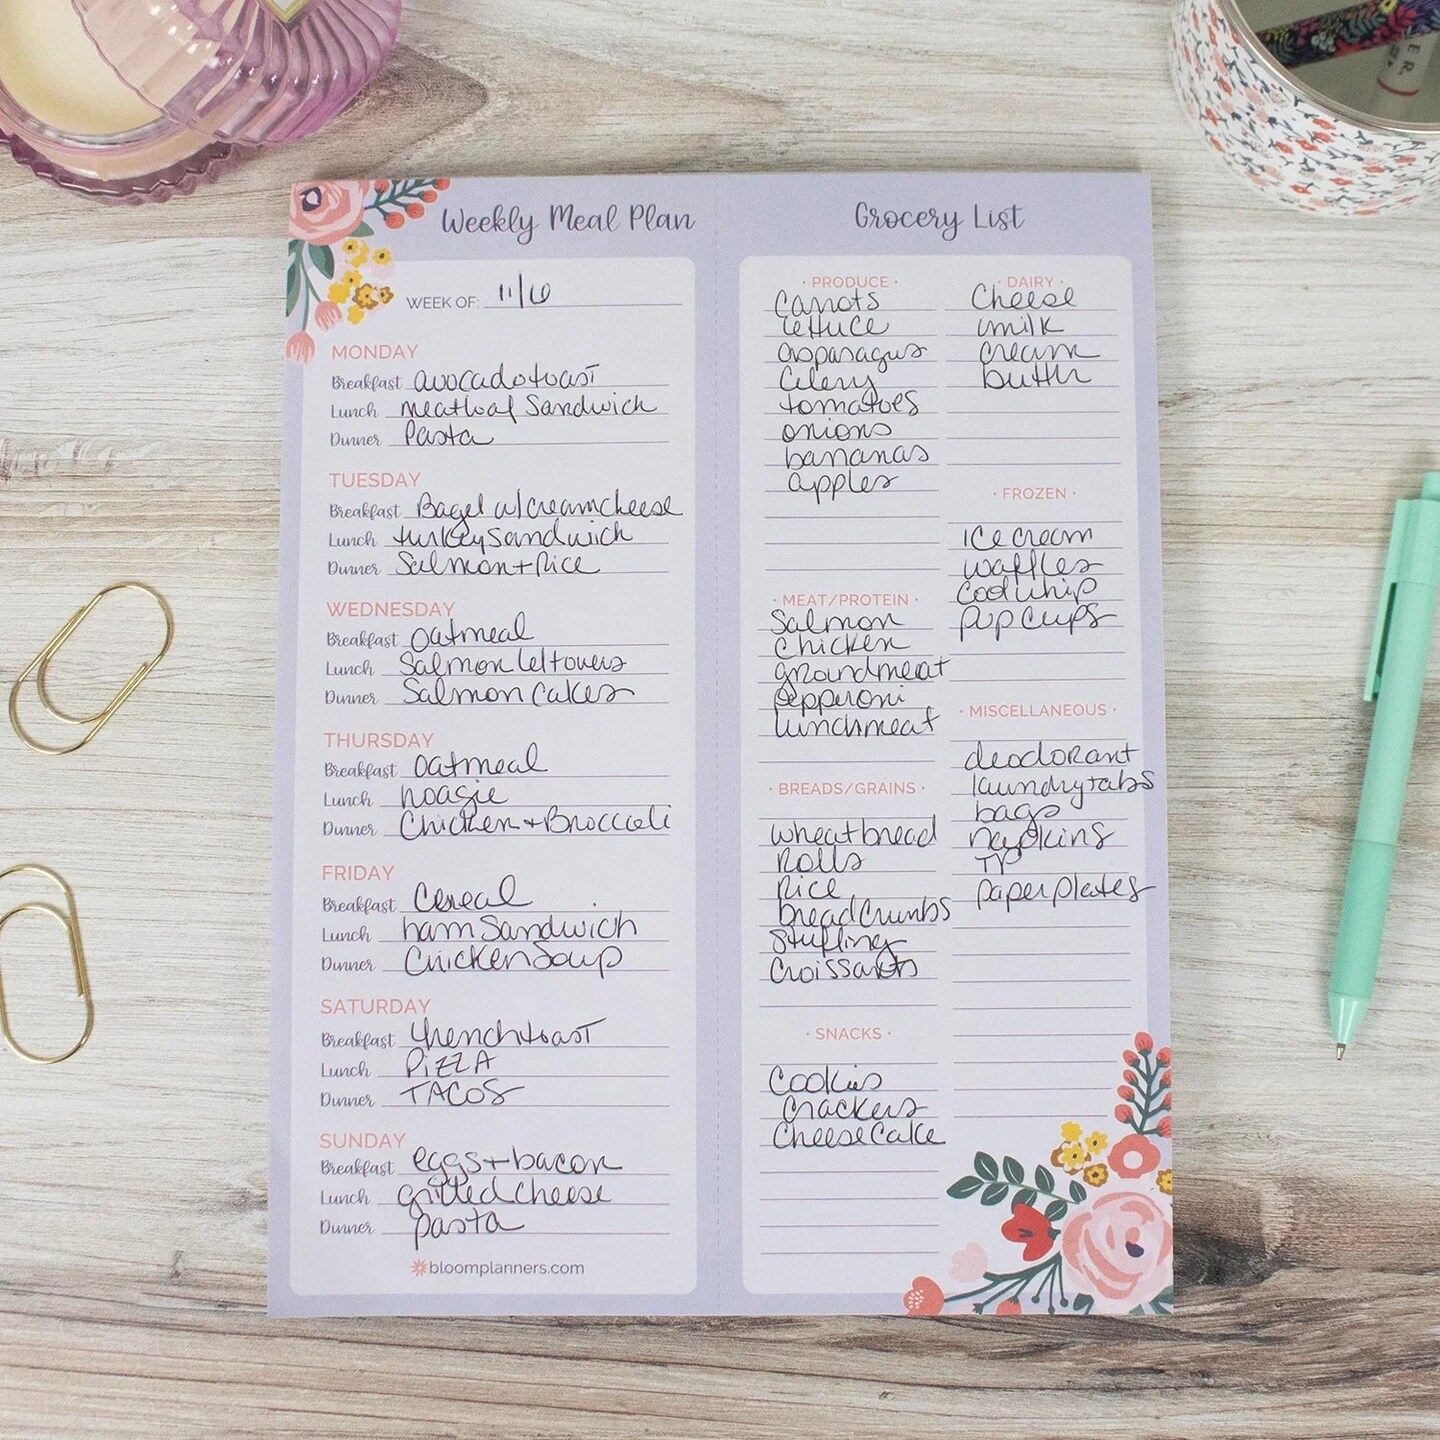 Weekly Meal Plan
WEEK OF: 11/6
MONDAY
Breakfast avocado toast
Lunch meatloaf Sandwich
Dinner Pasta
TUESDAY
Breakfast Bagel w/creamcheese
Lunch turkey sandwich
Dinner Salmon + Rice
WEDNESDAY
Breakfast oatmeal
Lunch Salmon leftovers
Dinner Salmon Cakes
THURSDAY
Breakfast oatmeal
Lunch hoagie
Dinner Chicken + Broccoli
FRIDAY
Breakfast Cereal
Lunch ham Sandwich
Dinner Chicken Soup
SATURDAY
Breakfast french toast
Lunch PIZZA
Dinner TACOS
SUNDAY
Breakfast eggs + bacon
Lunch grilled cheese
Dinner pasta
bloomplanners.com
Grocery List
· PRODUCE ·
Carrots
lettuce
asparagus
Celery
tomatoes
onions
bananas
apples
· MEAT/PROTEIN ·
Salmon
Chicken
groundmeat
pepperoni
lunchmeat
· BREADS/GRAINS ·
wheat bread
Rolls
Rice
bread Crumbs
Stuffing
Croissants
· SNACKS ·
Cookies
Crackers
Cheese Cake
· DAIRY ·
Cheese
milk
cream
butter
· FROZEN ·
ice cream
waffles
Cool whip
pup cups
· MISCELLANEOUS ·
deodorant
laundry tabs
bags
napkins
TP
paper plates